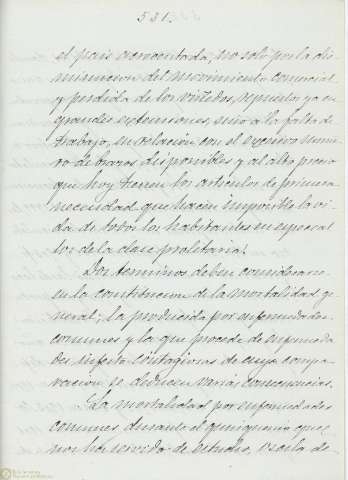 531.
el pais acrecentada, no solo por la dis-
minucion del movimiento comercial
y perdida de los viñedos, repuestos ya en
grandes extensiones, sino a la falta de
trabajo, en relacion con el excesivo nume-
ro de brazos disponibles y al alto precio
que hoy tienen los articulos de primera
necesidad que hacen imposible la vi-
da de todos los habitantes en especial
los de la clase proletaria.
Dos terminos deben considerarse
en la constitucion de la mortalidad ge-
neral; la producida por enfermedades
comunes y la que procede de enfermeda-
des infecto contagiosas de cuya compa-
racion se deducen varias consecuencias.
La mortalidad por enfermedades
comunes durante el quinquenio que
nos ha servido de estudio, oscila de